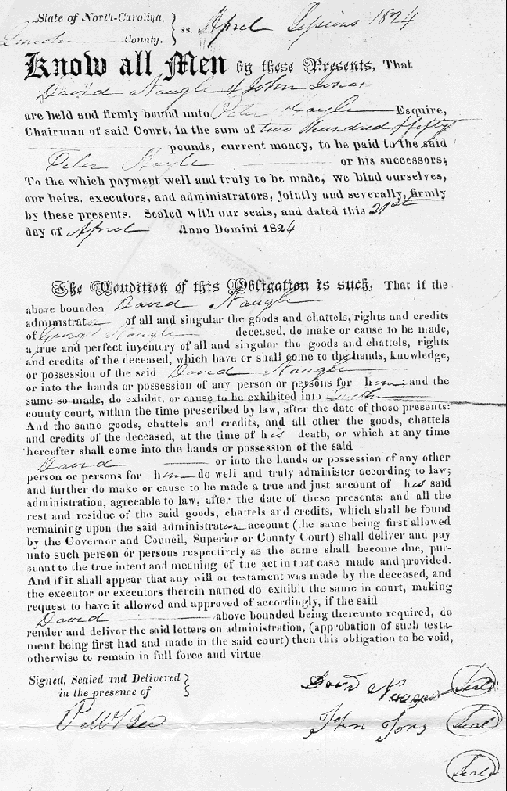 State of North-Carolina, } ss April Sessions 1824
Lincoln County. }
Know all Men by these Presents, That
David Naugle & John Jones
are held and firmly bound unto Peter Esquire,
Chairman of said Court, in the sum of two Hundred & fifty
pounds, current money, to be paid to the said
Peter or his successors;
To the which payment well and truly to be made, we bind ourselves,
our heirs, executors, and administrators, jointly and severally, firmly
by these presents. Sealed with our seals, and dated this 21st
day of April Anno Domini 1824
The Condition of this Obligation is such, That if the
above bounden David Naugle
administrator of all and singular the goods and chattels, rights and credits
of Naugle deceased, do make or cause to be made,
a true and perfect inventory of all and singular the goods and chattels, rights
and credits of the deceased, which have or shall come to the hands, knowledge,
or possession of the said David Naugle
or into the hands or possession of any person or persons for him and the
same so made, do exhibit, or cause to be exhibited into
county court, within the time prescribed by law, after the date of these presents:
And the same goods, chattels and credits, and all other the goods, chattels
and credits of the deceased, at the time of his death, or which at any time
hereafter shall come into the hands or possession of the said
David or into the hands or possession of any other
person or persons for him do well and truly administer according to law;
and further do make or cause to be made a true and just account of his said
administration, agreeable to law, after the date of these presents: and all the
rest and residue of the said goods, chattels and credits, which shall be found
remaining upon the said administrators account (the same being first allowed
by the Governor and Council, Superior or County Court) shall deliver and pay
unto such person or persons respectively as the same shall become due, pur-
suant to the true intent and meaning of the act in that case made and provided.
And if it shall appear that any will or testament was made by the deceased, and
the executor or executors therein named do exhibit the same in court, making
request to have it allowed and approved of accordingly, if the said
David above bounded being thereunto required, do
render and deliver the said letters on administration, (approbation of such testa-
ment being first had and made in the said court) then this obligation to be void,
otherwise to remain in full force and virtue
Signed, Sealed and Delivered }
in the presence of }
David Seal
John Jones Seal
Seal